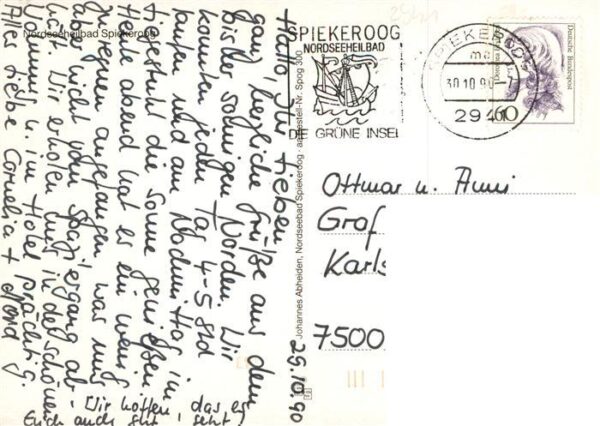 Nordseeheilbad Spiekeroog
Hallo Ihr Lieben
ganz herzliche Grüße aus dem
bis sonnigen Norden. Wir
konnten jeden Tag 4-5 Std
laufen und am Nachmittag im
die Sonne genießen
Heut abend hat es ein wenig
zu regnen angefangen, was uns
aber nicht vom Spaziergang ab-
hält. Wir erholen uns in der schönen
u. im Hotel prächtig.
Alles Liebe Cornelia +
Wir hoffen, das es
Euch auch gut geht
29.10.90
Johannes Abheiden, Nordseebad Spiekeroog · Bestell-Nr. Spog 300
SPIEKEROOG
NORDSEEHEILBAD
DIE GRÜNE INSEL
SPIEKEROOG
30.10.90
2941
Deutsche Bundespost
60
Ottmar u.
Graf
Karls
7500